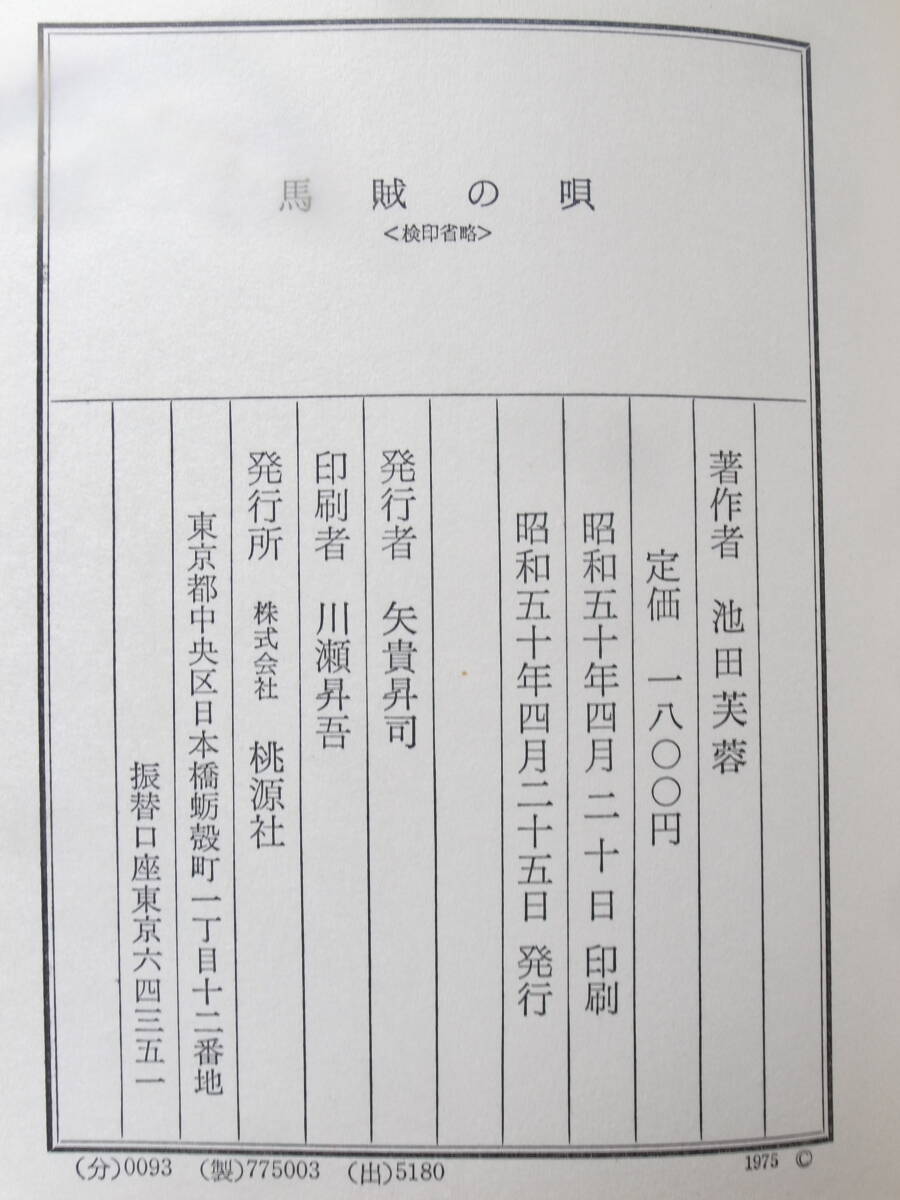 馬賊の唄
<検印省略>
著作者 池田芙蓉
定価 一八〇〇円
昭和五十年四月二十日 印刷
昭和五十年四月二十五日 発行
発行者 矢貴昇司
印刷者 川瀬昇吾
発行所 株式会社 桃源社
東京都中央区日本橋蛎殻町一丁目十二番地
振替口座東京六四三五一
(分)0093 (製)775003 (出)5180
1975 ©